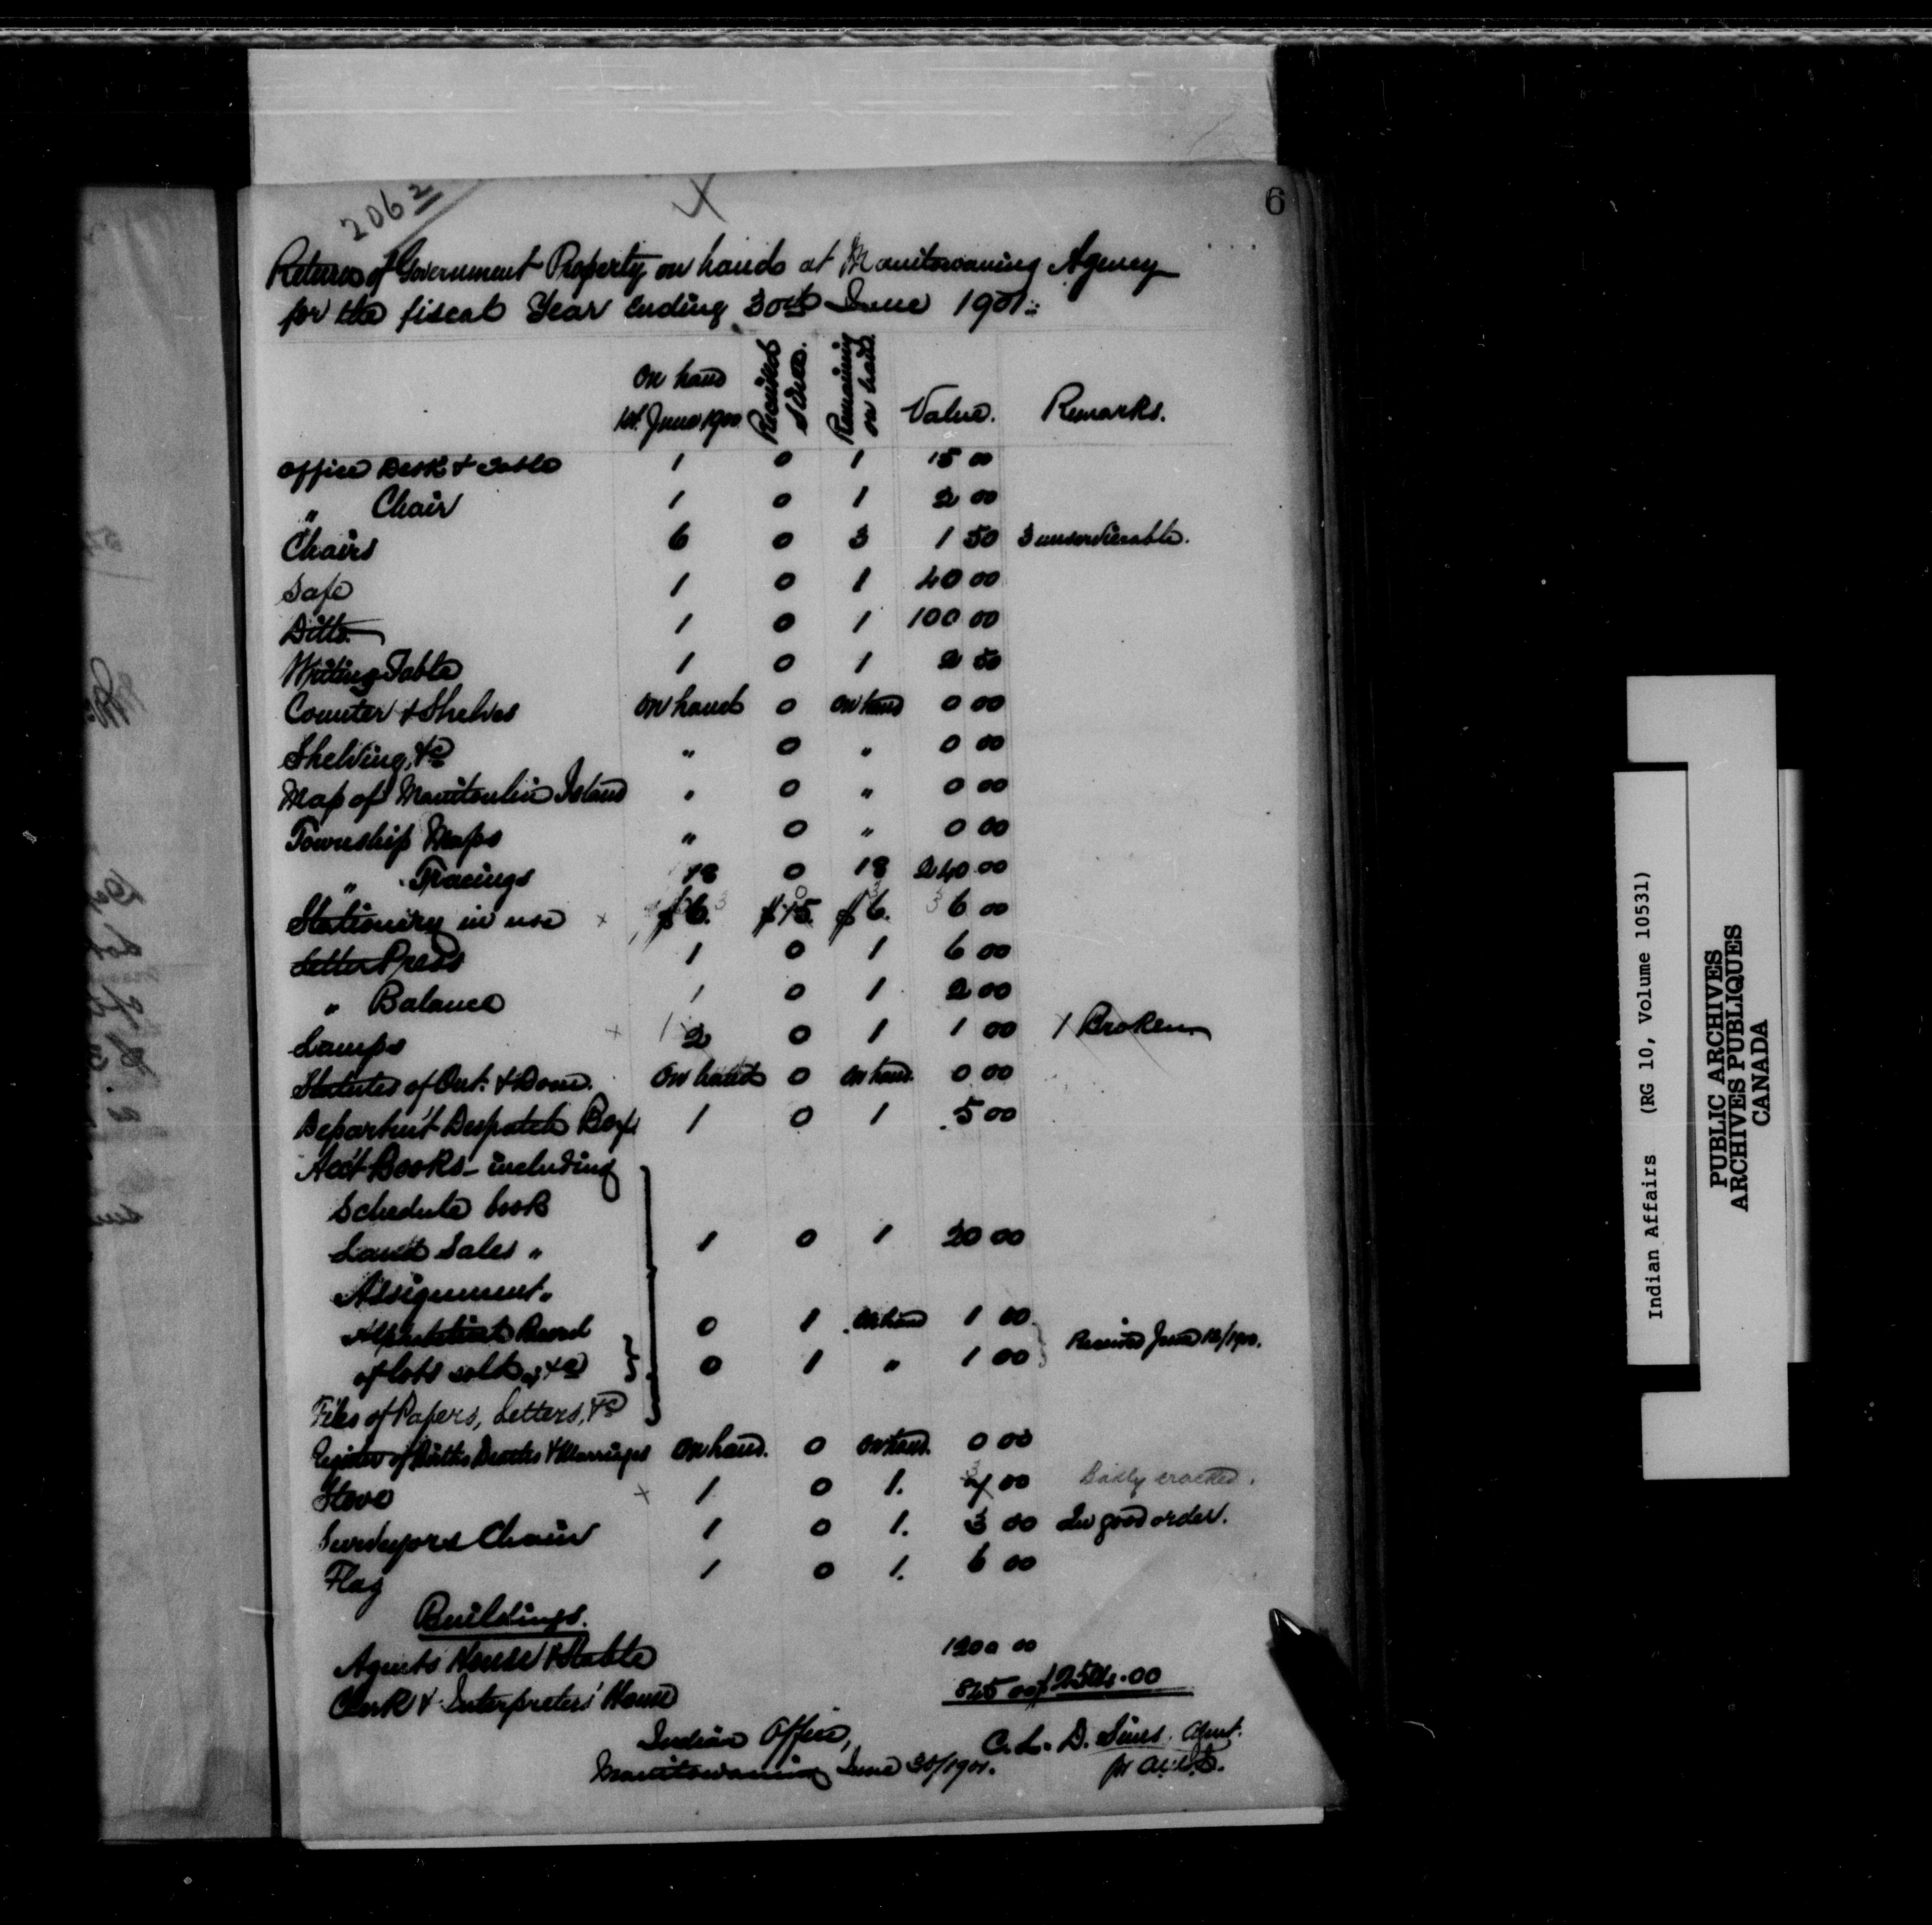 2062
X
6
Returns of Government Property on hands at Manitowaning Agency
for the fiscal Year ending 30th June 1901.
On hand 1st. June 1900 Received Since. Remaining on hand Value. Remarks.
Office Desk & Table 1 0 1 15 00
" Chair 1 0 1 2 00
Chairs 6 0 3 1 50 3 unserviceable.
Safe 1 0 1 40 00
Ditto 1 0 1 100 00
Writing Table 1 0 1 2 50
Counter & Shelves On hand 0 On hand 0 00
Shelving, &c " 0 " 0 00
Map of Manitoulin Island " 0 " 0 00
Township Maps " 0 " 0 00
" Tracings 18 0 18 240 00
Stationery in use x $6. $15. $6. 6 00
Letter Press 1 0 1 6 00
" Balance 1 0 1 2 00
Lamps x 2 0 1 1 00 1 Broken
Statutes of Ont. & Dom. On hand 0 On hand. 0 00
Departm't Despatch Box 1 0 1 5 00
Acc't Books - including
Schedule book
Land Sales " 1 0 1 20 00
Assignment "
Record 0 1 On hand 1 00
of lots sold, &c 0 1 " 1 00 Received June 12/1900.
Files of Papers, Letters, &c
Register of Births Deaths & Marriages On hand. 0 On hand. 0 00
Stove x 1 0 1. 4 00 Badly cracked.
Surveyors Chain 1 0 1. 3 00 In good order.
Flag 1 0 1. 6 00
Buildings.
Agents House & Stable 1200 00
Clerk & Interpreters' House 00
Indian Office,
Manitowaning June 30/1901.
C. L. D. Sims, Agent.
Indian Affairs (RG 10, Volume 10531)
PUBLIC ARCHIVES
ARCHIVES PUBLIQUES
CANADA